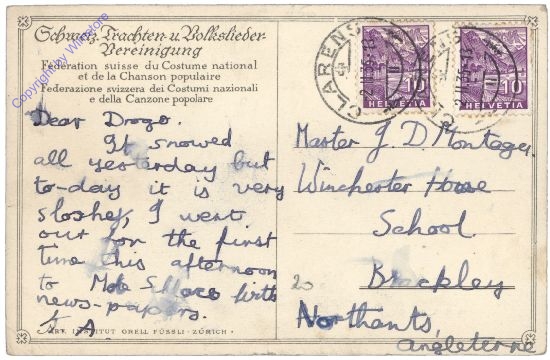 Schweiz. Trachten- u. Volkslieder-
Vereinigung
Federation suisse du Costume national
et de la Chanson populaire
Federazione svizzera dei Costumi nazionali
e della Canzone popolare
Copyright by Winstore
Dear Drogo.
It snowed
all yesterday but
to-day it is very
sloshey, I went
out for the first
time this afternoon
to
with
news-papers.
A
ART. INSTITUT ORELL FÜSSLI · ZÜRICH ·
CLARENS
10
HELVETIA
10
HELVETIA
Master J D Montagu
Winchester House
School
Brackley
Northants,
Angleterre
20